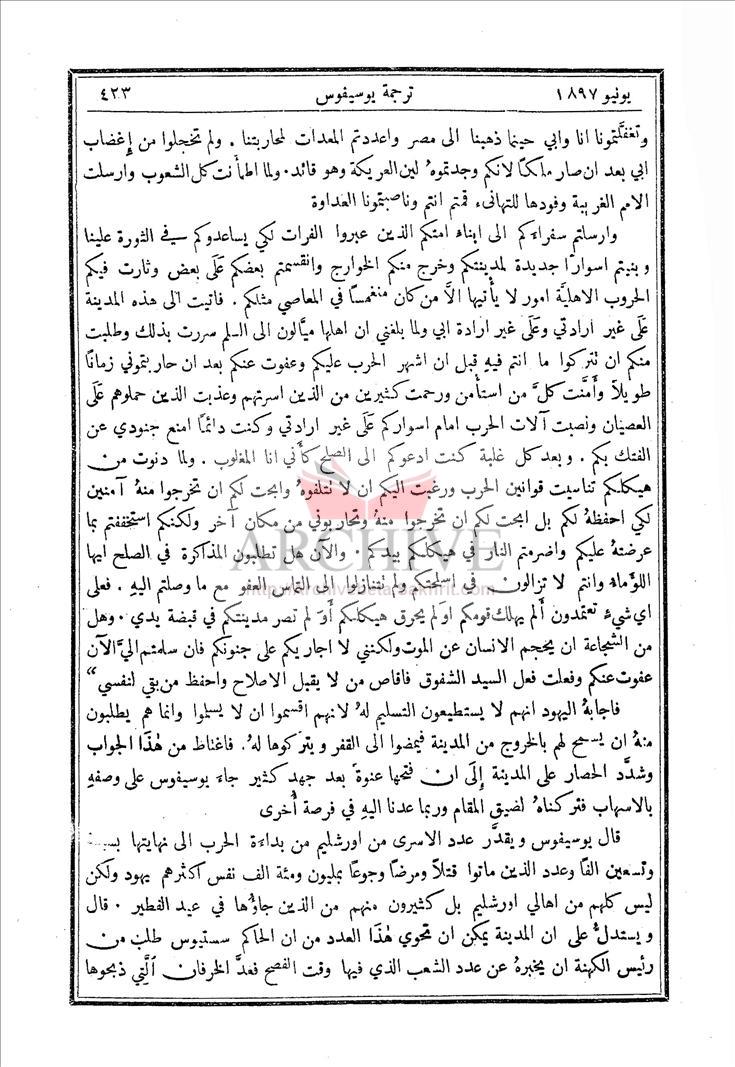 يونيو ١٨٩٧
ترجمة يوسيفوس
٤٢٣
وتغفَّلتمونا انا وابي حينما ذهبنا الى مصر واعددتم المعدات لمحاربتنا . ولم تخجلوا من إِغضاب
ابي بعد ان صار ملكًا لانكم وجدتموهُ لين العريكة وهو قائد . ولما اطمأنت كل الشعوب وارسلت
الامم الغريبة وفودها للتهانىء قمتم انتم وناصبتمونا العداوة
وارسلتم سفراءَكم الى ابناء امتكم الذين عبروا الفرات لكي يساعدوكم في الثورة علينا
وبنيتم اسوارًا جديدة لمدينتكم وخرج منكم الخوارج وانقسمتم بعضكم عَلَى بعض وثارت فيكم
الحروب الاهليَّة امور لا يأتيها الاَّ من كان منغمسًا في المعاصي مثلكم . فاتيت الى هذه المدينة
عَلَى غير ارادتي وعَلَى غير ارادة ابي ولما بلغني ان اهلها ميَّالون الى السلم سررت بذلك وطلبت
منكم ان تتركوا ما انتم فيهِ قبل ان اشهر الحرب عليكم وعفوت عنكم بعد ان حاربتموني زمانًا
طويلاً وأَمَّنت كلَّ من استأمن ورحمت كثيرين من الذين اسرتهم وعذبت الذين حملوهم عَلَى
العصيان ونصبت آلات الحرب امام اسواركم عَلَى غير ارادتي وكنت دائمًا امنع جنودي عن
الفتك بكم . وبعد كل غلبة كنت ادعوكم الى الصلح كأَني انا المغلوب . ولما دنوت من
هيكلكم تناسيت قوانين الحرب ورغبت اليكم ان لا تتلفوهُ وابحت لكم ان تخرجوا منهُ آمنين
لكي احفظهُ لكم بل ابحت لكم ان تخرجوا منهُ وتحاربوني من مكان آخر ولكنكم استخففتم بما
عرضتهُ عليكم واضرمتم النار في هيكلكم بيدكم . والآن هل تطلبون المذاكرة في الصلح ايها
اللؤماء وانتم لا تزالون في اسلحتكم ولم تتنازلوا الى التماس العفو مع ما وصلتم اليهِ . فعلى
اي شيءٍ تعتمدون أَلم يهلك قومكم او لم يحرق هيكلكم أَوَ لم تصر مدينتكم في قبضة يدي . وهل
من الشجاعة ان يحجم الانسان عن الموت ولكنني لا اجاريكم على جنونكم فان سلمتم اليَّ الآن
عفوت عنكم وفعلت فعل السيد الشفوق فاقاص من لا يقبل الاصلاح واحفظ من بقي لنفسي“
فاجابهُ اليهود انهم لا يستطيعون التسليم لهُ لانهم اقسموا ان لا يسلموا وانما هم يطلبون
منهُ ان يسمح لهم بالخروج من المدينة فيمضوا الى القفر ويتركوها لهُ . فاغتاظ من هٰذا الجواب
وشدَّد الحصار على المدينة إِلَى ان فتحها عنوةً بعد جهدٍ كثير جاءَ يوسيفوس على وصفهِ
بالاسهاب فتركناهُ لضيق المقام وربما عدنا اليهِ في فرصة أُخرى
قال يوسيفوس ويقدَّر عدد الاسرى من اورشليم من بداءَة الحرب الى نهايتها بسبعة
وتسعين الفًا وعدد الذين ماتوا قتلاً ومرضًا وجوعًا بمليون ومئة الف نفس اكثرهم يهود ولكن
ليس كلهم من اهالي اورشليم بل كثيرون منهم من الذين جاؤُها في عيد الفطير . قال
ويستدلُّ على ان المدينة يمكن ان تحوي هٰذا العدد من ان الحاكم سستيوس طلب من
رئيس الكهنة ان يخبرهُ عن عدد الشعب الذي فيها وقت الفصح فعدَّ الخرفان الَّتي ذبحوها
ARCHIVE